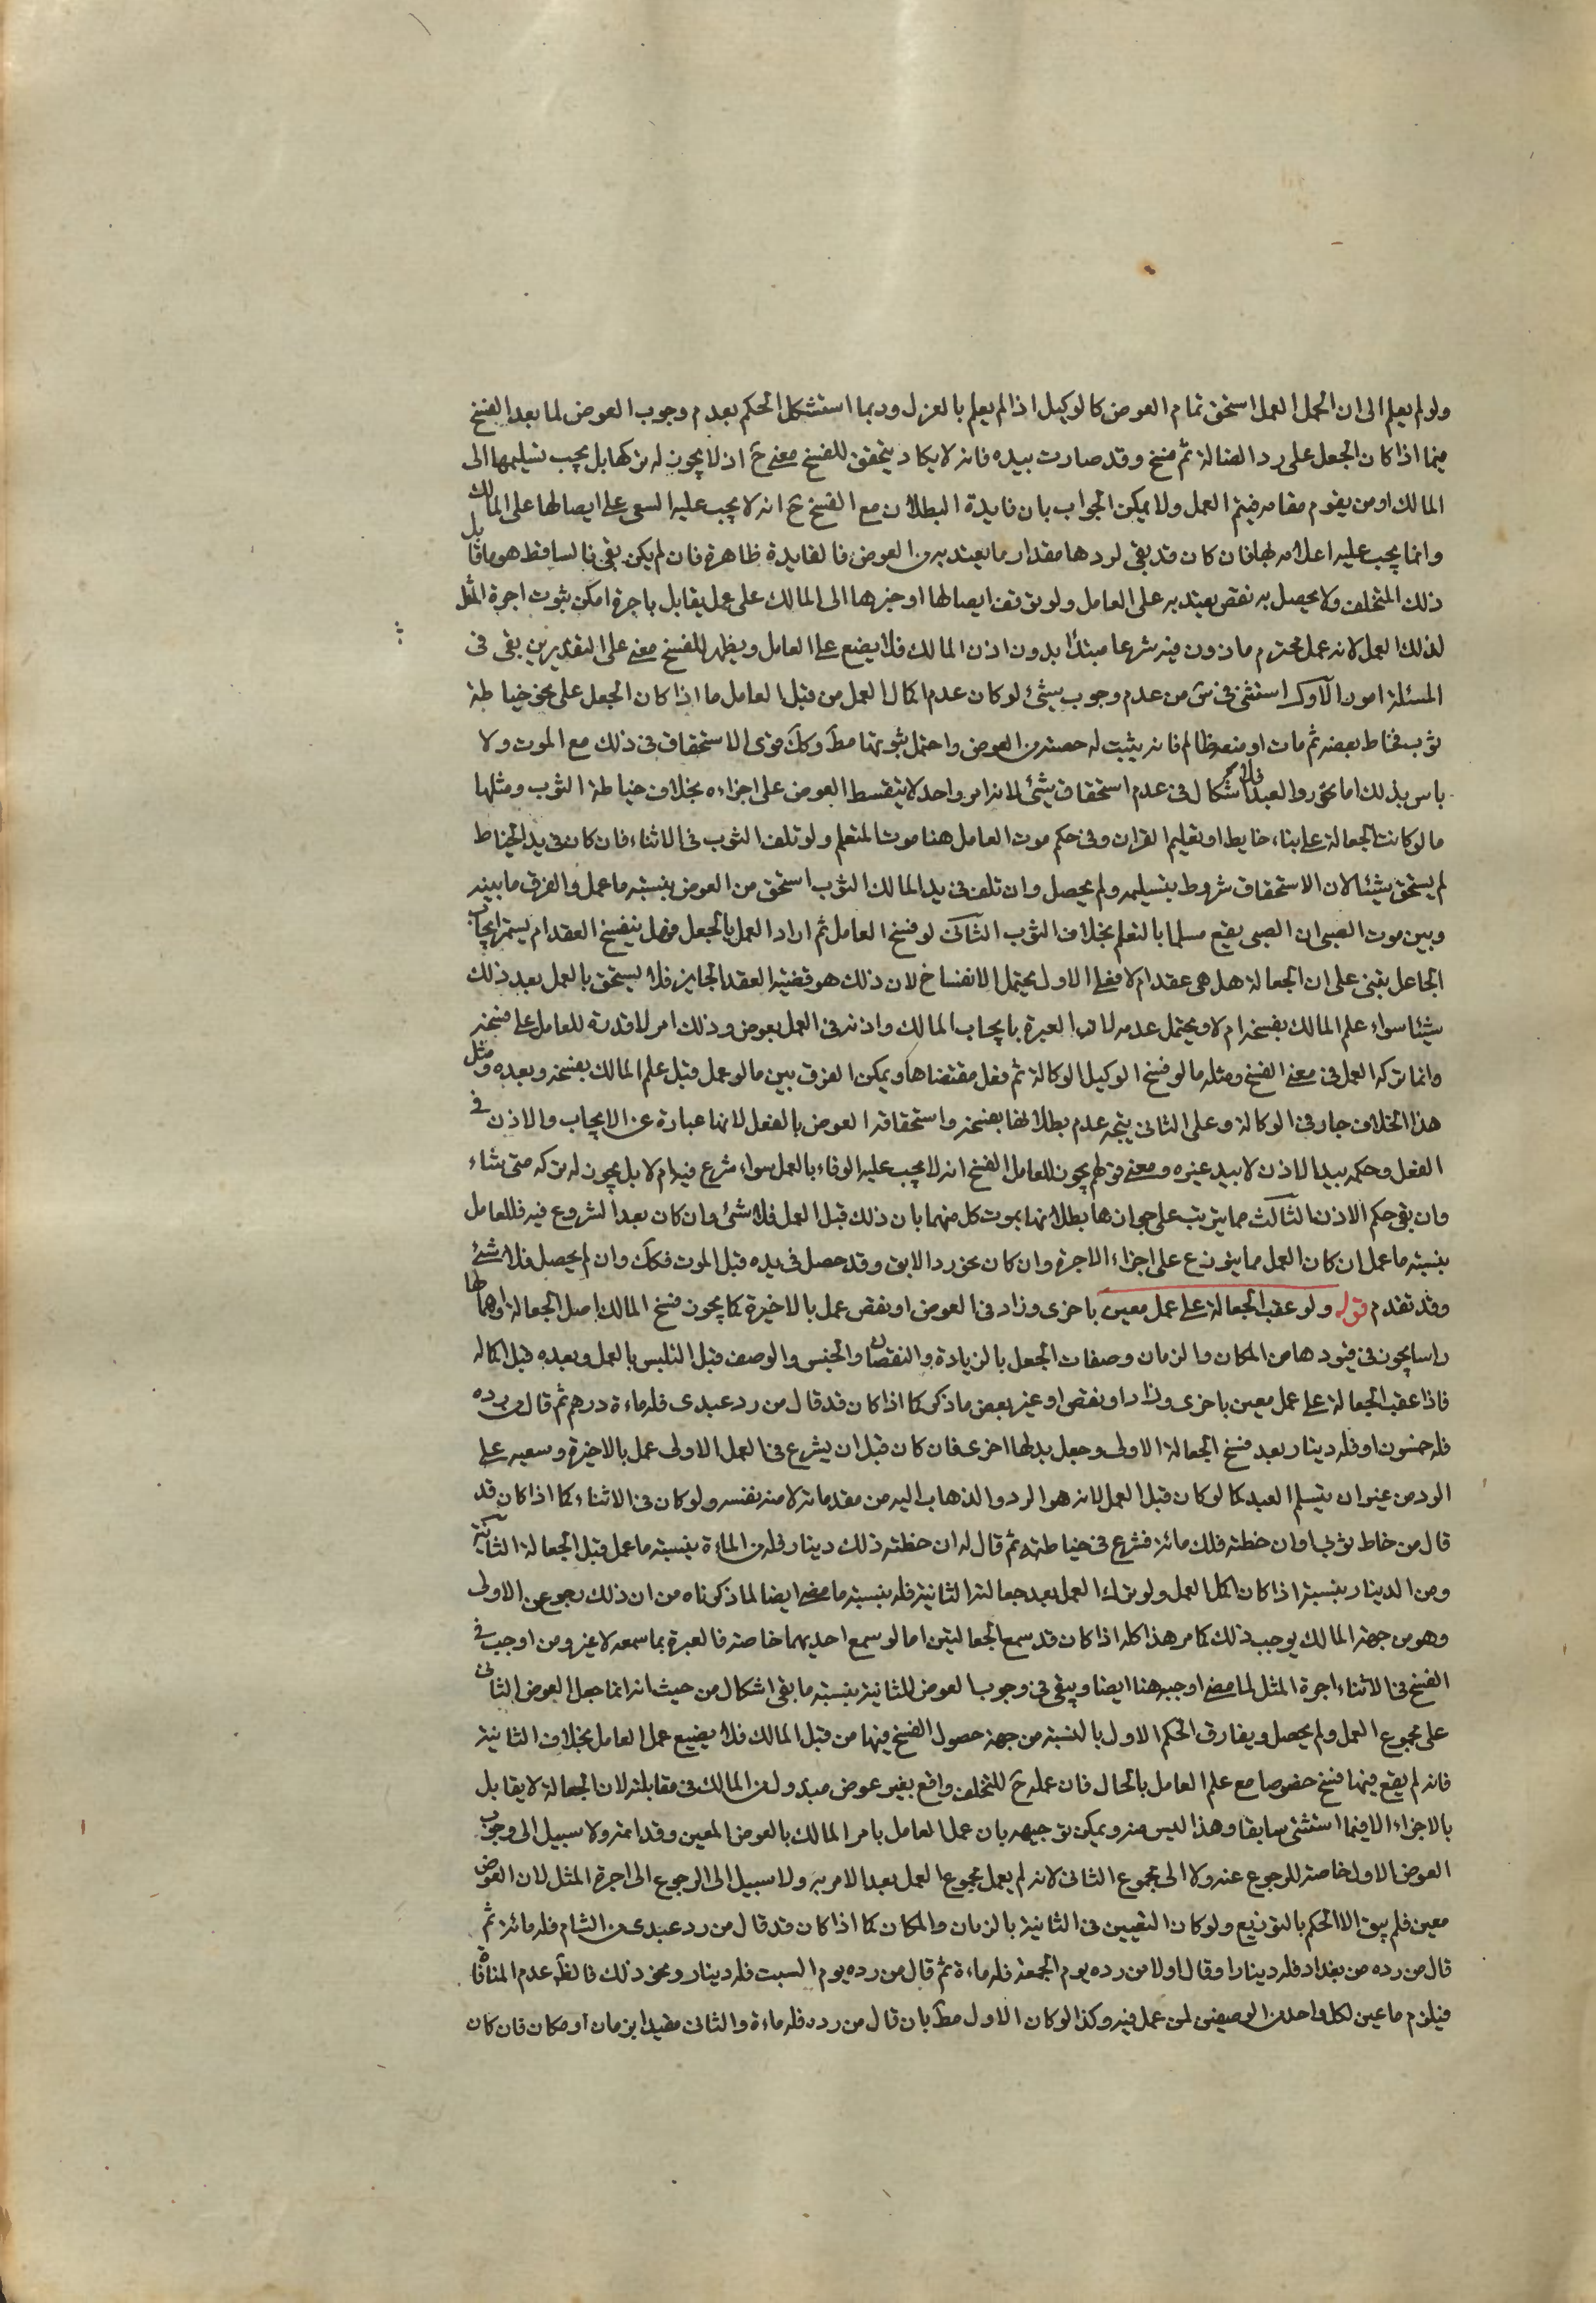 ولو لم يعلم الى ان اكمل العمل استحق تمام العوض كالوكيل اذا لم يعلم بالعزل وربما استشكل الحكم بعدم وجوب العوض لما بعد الفسخ
فيما اذا كان الجعل على رد الضالة ثم فسخ وقد صارت بيده فانه لا يكاد يتحقق للفسخ معنى ح اذ لا يجوز له تركها بل يجب تسليمها الى
المالك او من يقوم مقامه فيتم العمل ولا يمكن الجواب بان فايدة البطلان مع الفسخ ح انه لا يجب عليه السعى على ايصالها على المالك بل
وانما يجب عليه اعلامه بها فان كان قد بقى لردها مقدار ما يعتد به من العوض فالفايدة ظاهرة فان لم يكن بقى فالساقط هو ما قابل
ذلك المتخلف ولا يحصل به نقص يعتد به على العامل ولو توقف ايصالها او خبرها الى المالك على عمل يقابل باجرة امكن ثبوت اجرة المثل
لذلك العمل لانه عمل محترم ماذون فيه شرعا مبتدأ بدون اذن المالك فلا يضيع على العامل ويظهر للفسخ معنى على التقديرين بقى فى
المسئلة امور الاول استثنى فى س من عدم وجوب شئ لو كان عدم اكمال العمل من قبل العامل ما اذا كان الجعل على نحو خياطة
ثوب فخاط بعضه ثم مات او منعه ظالم فانه يثبت له حصته من العوض واحتمل ثبوتها مط وكك قوى الاستحقاق فى ذلك مع الموت ولا
باس بذلك اما نحو رد العبد فلا اشكال فى عدم استحقاق شئ لانه امر واحد لا يتقسط العوض على اجزاءه بخلاف خياطة الثوب ومثلها
ما لو كانت الجعالة على بناء حايط او تعليم القران وفى حكم موت العامل هنا موت المتعلم ولو تلف الثوب فى الاثناء فان كان فى يد الخياط
لم يستحق شيئا لان الاستحقاق مشروط بتسليمه ولم يحصل وان تلف فى يد المالك الثوب استحق من العوض بنسبة ما عمل والفرق ما بينه
وبين موت الصبى ان الصبى يقع مسلما بالتعلم بخلاف الثوب الثانى لو فسخ العامل ثم اراد العمل بالجعل فهل ينفسخ العقد ام يستمر ايجاب
الجاعل يبتنى على ان الجعالة هل هى عقد ام لا فعلى الاول يحتمل الانفساخ لان ذلك هو قضية العقد الجايز فلا يستحق بالعمل بعد ذلك
شيئا سواء علم المالك بفسخه ام لا ويحتمل عدمه لان العبرة بايجاب المالك واذنه فى العمل بعوض وذلك امر لا قدرة للعامل على فسخه
وانما تركه العمل فى معنى الفسخ ومثله ما لو فسخ الوكيل الوكالة ثم فعل مقتضاها ويمكن الفرق بين ما لو عمل قبل علم المالك بفسخه وبعده ومثل
هذا الخلاف جار فى الوكالة وعلى الثانى يتجه عدم بطلانها بفسخه واستحقاقه العوض بالفعل لانها عبارة عن الايجاب والاذن فى
الفعل وحكمه بيد الاذن لا بيد غيره ومعنى قولهم يجوز للعامل الفسخ انه لا يجب عليه الوفاء بالعمل سواء شرع فيه ام لا بل يجوز له تركه متى شاء
وان بقى حكم الاذن الثالث مما يترتب على جوازها بطلانها بموت كل منهما بان ذلك قبل العمل فلا شئ وان كان بعد الشروع فيه فللعامل
بنسبة ما عمل ان كان العمل مما يتوزع على اجزاء الاجرة وان كان نحو رد الابق وقد حصل فى يده قبل الموت فكك وان لم يحصل فلا شئ
وقد تقدم قوله ولو عقب الجعالة على عمل معين باخرى وزاد فى العوض او نقص عمل بالاخيرة كما يجوز فسخ المالك اصل الجعالة واهمالها
راسا يجوز فى قيودها من المكان والزمان وصفات الجعل بالزيادة والنقصان والجنس والوصف قبل التلبس بالعمل وبعده قبل اكماله
فاذا عقب الجعالة على عمل معين باخرى وزاد او نقص او غير بعض ما ذكر كما اذا كان قد قال من رد عبدى فله ماءة درهم ثم قال من رده
فله خمسون او فله دينار بعد فسخ الجعالة الاولى وجعل بدلها اخرى فان كان قبل ان يشرع فى العمل الاولى عمل بالاخيرة وسعيه على
الرد من غير ان يتسلم العبد كما لو كان قبل العمل لانه هو الرد والذهاب اليه من مقدماته لا منه نفسه ولو كان فى الاثناء كما اذا كان قد
قال من خاط ثوبى او ان خطته فلك مائة فشرع فى خياطته ثم قال له ان خطته ذلك دينار فله من الماءة بنسبة ما عمل قبل الجعالة الثانية
ومن الدينار بنسبة اذا كان اكمل العمل ولو ترك العمل بعد جعالة الثانية فله بنسبة ما مضى ايضا لما ذكرناه من ان ذلك رجوع عن الاولى
وهو من جهة المالك يوجب ذلك كما مر هذا كله اذا كان قد سمع الجعالتين اما لو سمع احديهما خاصة فالعبرة بما سمعه لا غير ومن اوجب فى
الفسخ فى الاثناء اجرة المثل لما مضى اوجبه هنا ايضا ويبقى فى وجوب العوض للثانية بنسبة ما بقى اشكال من حيث انه انما جعل العوض الثانى
على مجموع العمل ولم يحصل ويفارق الحكم الاول بالنسبة من جهة حصول الفسخ فيها من قبل المالك فلا يضيع عمل العامل بخلاف الثانية
فانه لم يقع فيها فسخ خصوصا مع علم العامل بالحال فان عمله ح للتخلف واقع بغير عوض مبذول من المالك فى مقابلته لان الجعالة لا يقابل
بالاجزاء الا فيما استثنى سابقا وهذا ليس منه ويمكن توجيهه بان عمل العامل بامر المالك بالعوض المعين وقد اتمه ولا سبيل الى وجوب
العوض الاول خاصة للرجوع عنه ولا الى مجموع الثانى لانه لم يعمل مجموع العمل بعد الامر به ولا سبيل الى الرجوع الى اجرة المثل لان العوض
معين فلم يبق الا الحكم بالتوزيع ولو كان التعيين فى الثانية بالزمان والمكان كما اذا كان قد قال من رد عبدى من الشام فله مائة ثم
قال من رده من بغداد فله دينار او قال اولا من رده يوم الجمعة فله ماءة ثم قال من رده يوم السبت فله دينار ونحو ذلك فالظ عدم المنافاة
فيلزم ما عين لكل واحد من الوصفين لمن عمل فيه وكذا لو كان الاول مط بان قال من رده فله ماءة والثانى مقيدا بزمان او مكان فان كان